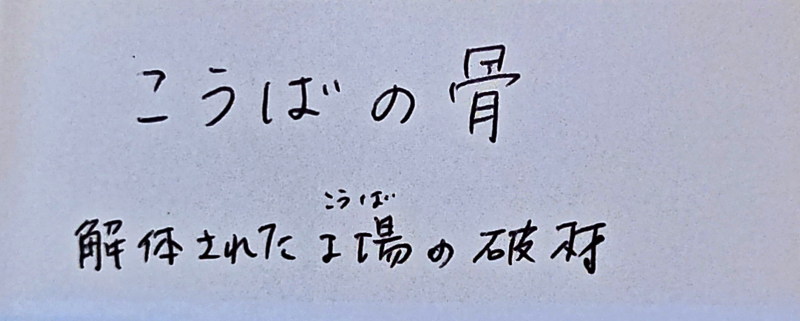 こうばの骨
こうば
解体された工場の破材